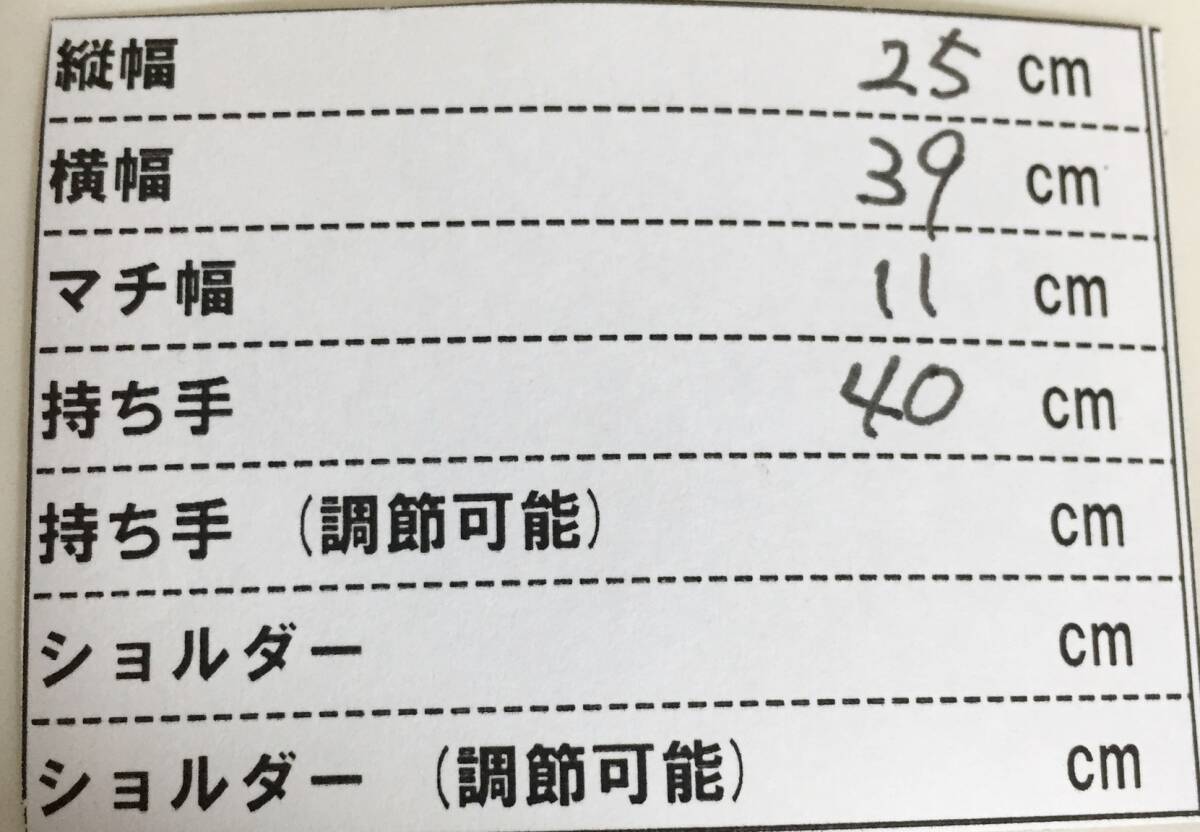 縦幅 25 cm
横幅 39 cm
マチ幅 11 cm
持ち手 40 cm
持ち手 (調節可能) cm
ショルダー cm
ショルダー (調節可能) cm